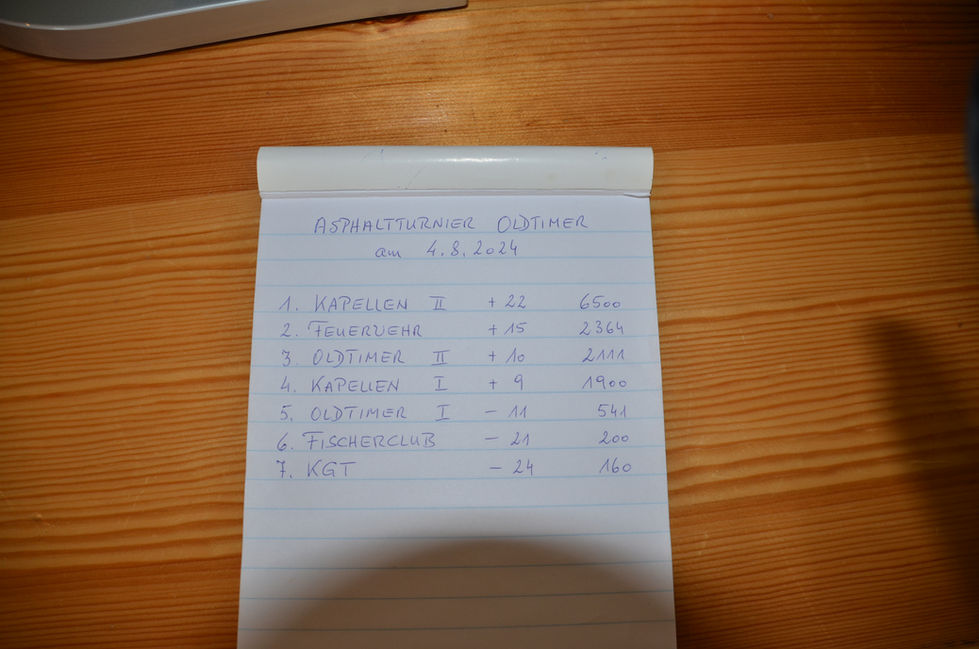 ASPHALTTURNIER OLDTIMER
am 4.8.2024
1. KAPELLEN II + 22 6500
2. FEUERWEHR + 15 2364
3. OLDTIMER II + 10 2111
4. KAPELLEN I + 9 1900
5. OLDTIMER I - 11 541
6. FISCHERCLUB - 21 200
7. KGT - 24 160